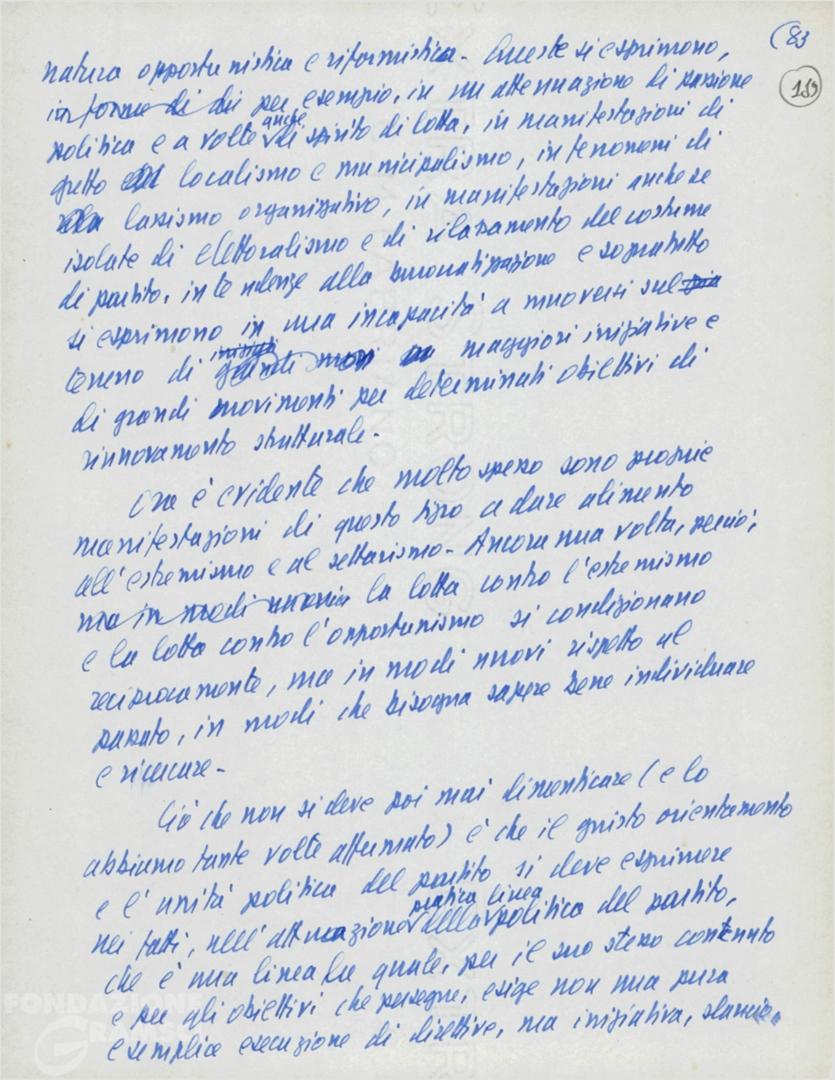 (83
159
natura opportunistica e riformistica. Queste si esprimono,
in forme di di per esempio, in un attenuazione di passione
politica e a volte anche di spirito di lotta, in manifestazioni di
gretto localismo e municipalismo, in fenomeni di
lassismo organizzativo, in manifestazioni anche se
isolate di elettoralismo e di rilasamento del costume
di partito, in tendenze alla burocratizzazione e sopratutto
si esprimono in una incapacità a muoversi sul
terreno di maggiori iniziative e
di grandi movimenti per determinati obiettivi di
rinnovamento strutturale.
Ora è evidente che molto spesso sono proprie
manifestazioni di questo tipo a dare alimento
all'estremismo e al settarismo. Ancora una volta, perciò,
ma in modi nuovi la lotta contro l'estremismo
e la lotta contro l'opportunismo si condizionano
reciprocamente, ma in modi nuovi rispetto al
passato, in modi che bisogna sapere bene individuare
e ricercare.
Ciò che non si deve poi mai dimenticare (e lo
abbiamo tante volte affermato) è che il giusto orientamento
e l'unità politica del partito si deve esprimere
nei fatti, nell'attuazione pratica della linea politica del partito,
che è una linea la quale, per il suo stesso contenuto
e per gli obiettivi che persegue, esige non una pura
e semplice esecuzione di direttive, ma iniziativa, slancio,
FONDAZIONE
GRAMSCI